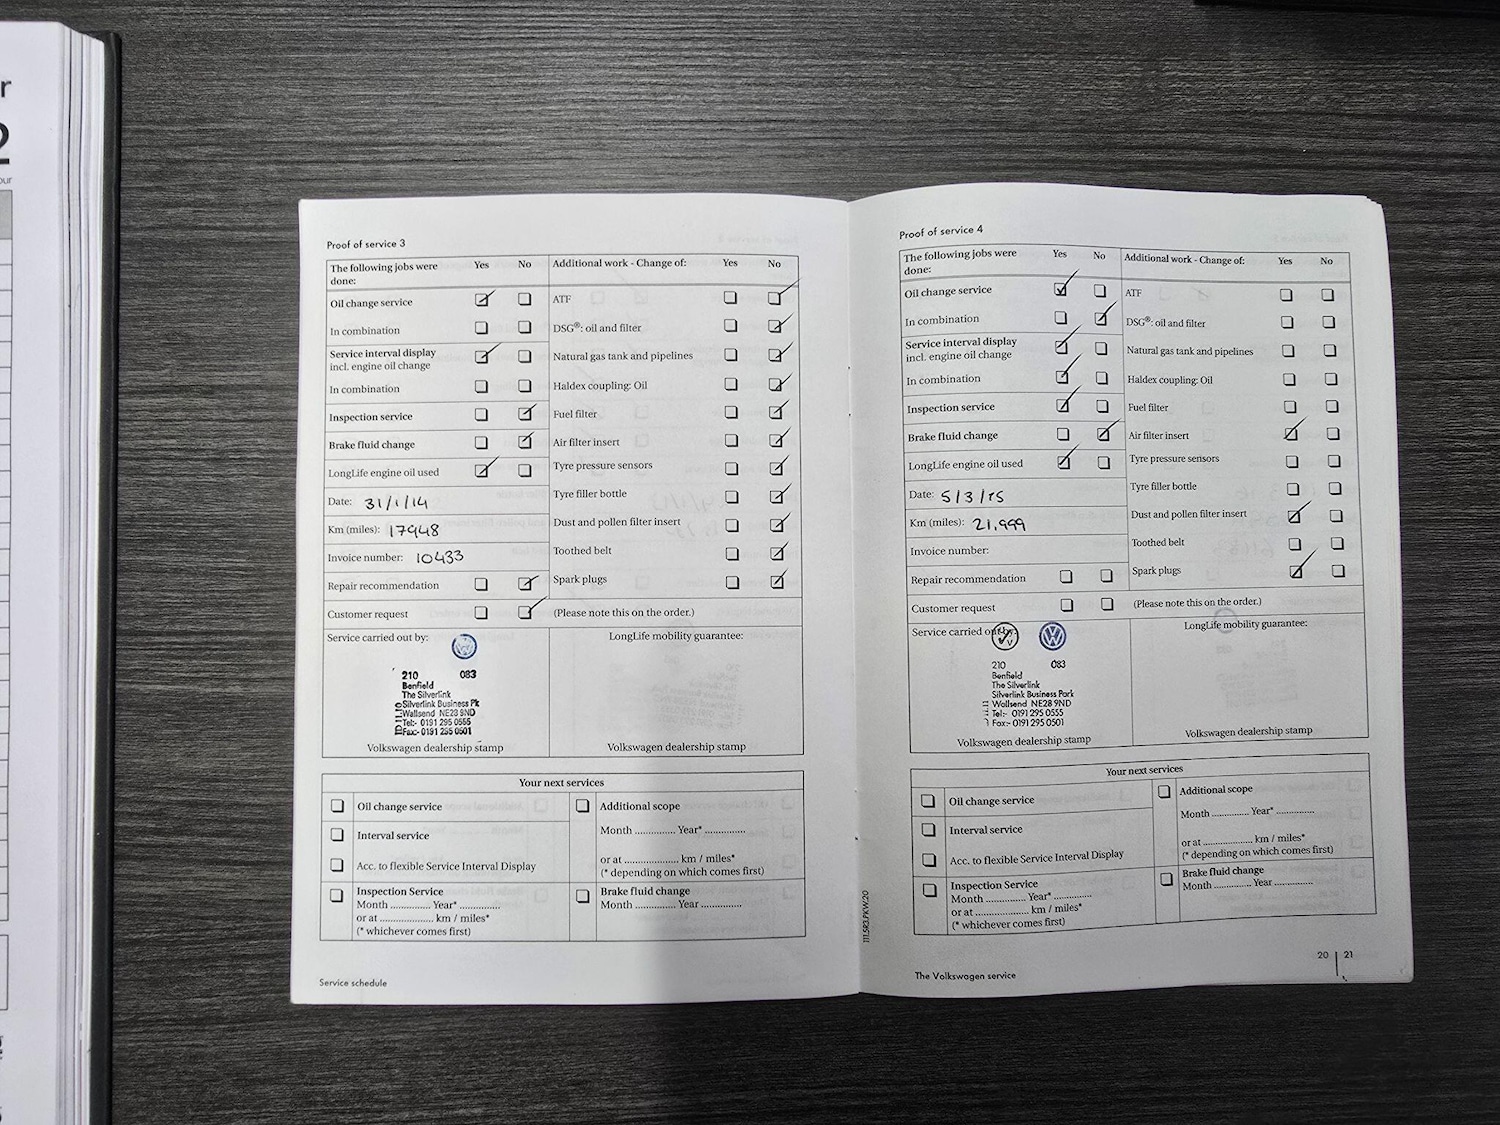 r
2
our
Proof of service 3
The following jobs were done: Yes No Additional work - Change of: Yes No
Oil change service ATF
In combination DSG®: oil and filter
Service interval display incl. engine oil change Natural gas tank and pipelines
In combination Haldex coupling: Oil
Inspection service Fuel filter
Brake fluid change Air filter insert
LongLife engine oil used Tyre pressure sensors
Date: 31/1/14 Tyre filler bottle
Km (miles): 17948 Dust and pollen filter insert
Invoice number: 10433 Toothed belt
Repair recommendation Spark plugs
Customer request (Please note this on the order.)
Service carried out by: LongLife mobility guarantee:
210 083
Benfield
The Silverlink
Silverlink Business Pk
Wallsend NE28 9ND
Tel:- 0191 295 0555
Fax:- 0191 295 0501
Volkswagen dealership stamp Volkswagen dealership stamp
Your next services
Oil change service Additional scope
Interval service Month .............. Year* ..............
Acc. to flexible Service Interval Display or at .................... km / miles*
(* depending on which comes first)
Inspection Service Brake fluid change
Month .............. Year* .............. Month .............. Year ..............
or at .................... km / miles*
(* whichever comes first)
Service schedule
111.5R3.PKW.20
Proof of service 4
The following jobs were done: Yes No Additional work - Change of: Yes No
Oil change service ATF
In combination DSG®: oil and filter
Service interval display incl. engine oil change Natural gas tank and pipelines
In combination Haldex coupling: Oil
Inspection service Fuel filter
Brake fluid change Air filter insert
LongLife engine oil used Tyre pressure sensors
Date: 5/3/15 Tyre filler bottle
Km (miles): 21,999 Dust and pollen filter insert
Invoice number: Toothed belt
Repair recommendation Spark plugs
Customer request (Please note this on the order.)
Service carried out by: LongLife mobility guarantee:
210 083
Benfield
The Silverlink
Silverlink Business Park
Wallsend NE28 9ND
Tel:- 0191 295 0555
Fax:- 0191 295 0501
Volkswagen dealership stamp Volkswagen dealership stamp
Your next services
Oil change service Additional scope
Interval service Month .............. Year* ..............
Acc. to flexible Service Interval Display or at .................... km / miles*
(* depending on which comes first)
Inspection Service Brake fluid change
Month .............. Year* .............. Month .............. Year ..............
or at .................... km / miles*
(* whichever comes first)
The Volkswagen service 20 | 21